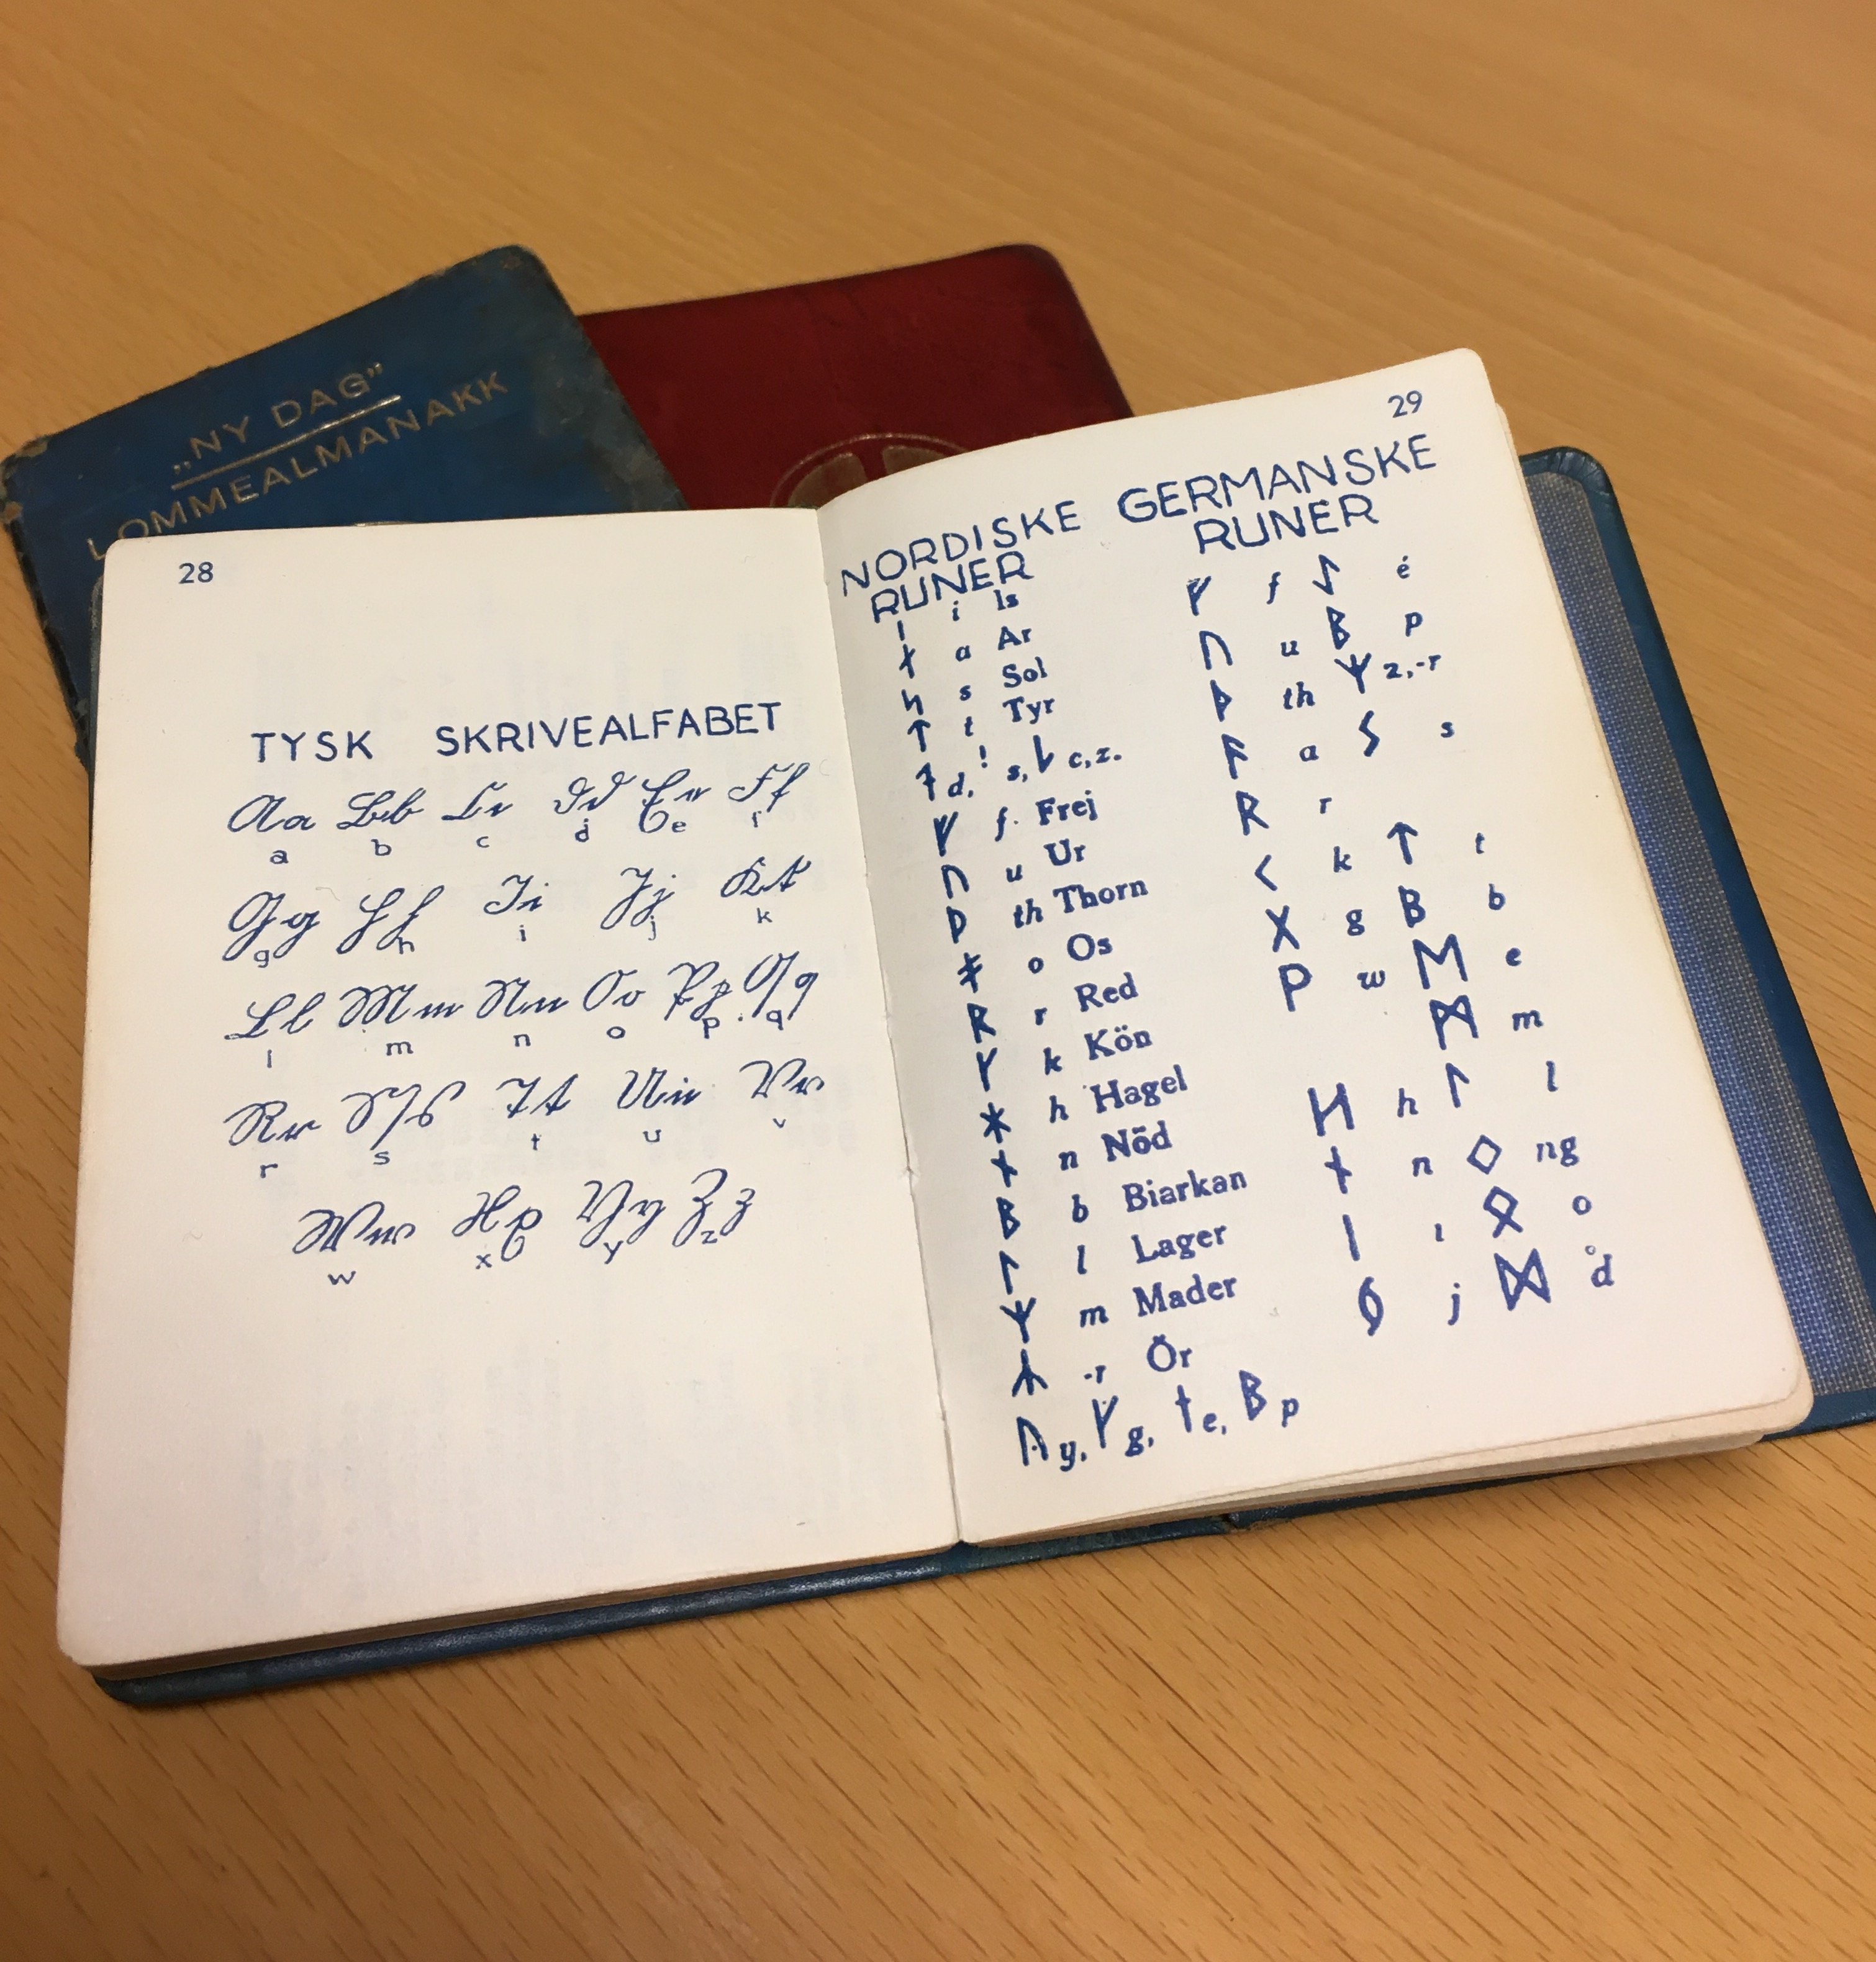 „NY DAG”
LOMMEALMANAKK
28
TYSK SKRIVEALFABET
Aa Bb Cc Dd Ee Ff
a b c d e f
Gg Hh Ii Jj Kk
g h i j k
Ll Mm Nn Oo Pp Qq
l m n o p q
Rr Ss Tt Uu Vv
r s t u v
Ww Xx Yy Zz
w x y z
29
NORDISKE
RUNER
ᛁ i Is
ᛅ a Ar
ᛋ s Sol
ᛏ t Tyr
d, ! s, c,z.
ᚠ f. Frej
ᚢ u Ur
ᚦ th Thorn
ᚯ o Os
ᚱ r Red
ᚴ k Kön
ᚼ h Hagel
ᚾ n Nöd
ᛒ b Biarkan
ᛚ l Lager
ᛘ m Mader
ᛦ -r Ör
ᚤ y, ᚵ g, e, ᛒ p
GERMANSKE
RUNER
ᚠ f
ᚢ u
ᚦ th
ᚨ a
ᚱ r
ᚲ k
ᚷ g
ᚹ w
ᚺ h
ᚾ n
ᛁ ı
j
ᛇ é
ᛒ p
ᛉ z,-r
ᛊ s
ᛏ t
ᛒ b
ᛖ e
ᛗ m
ᛚ l
ᛜ ng
ᛟ o
ᛞ d